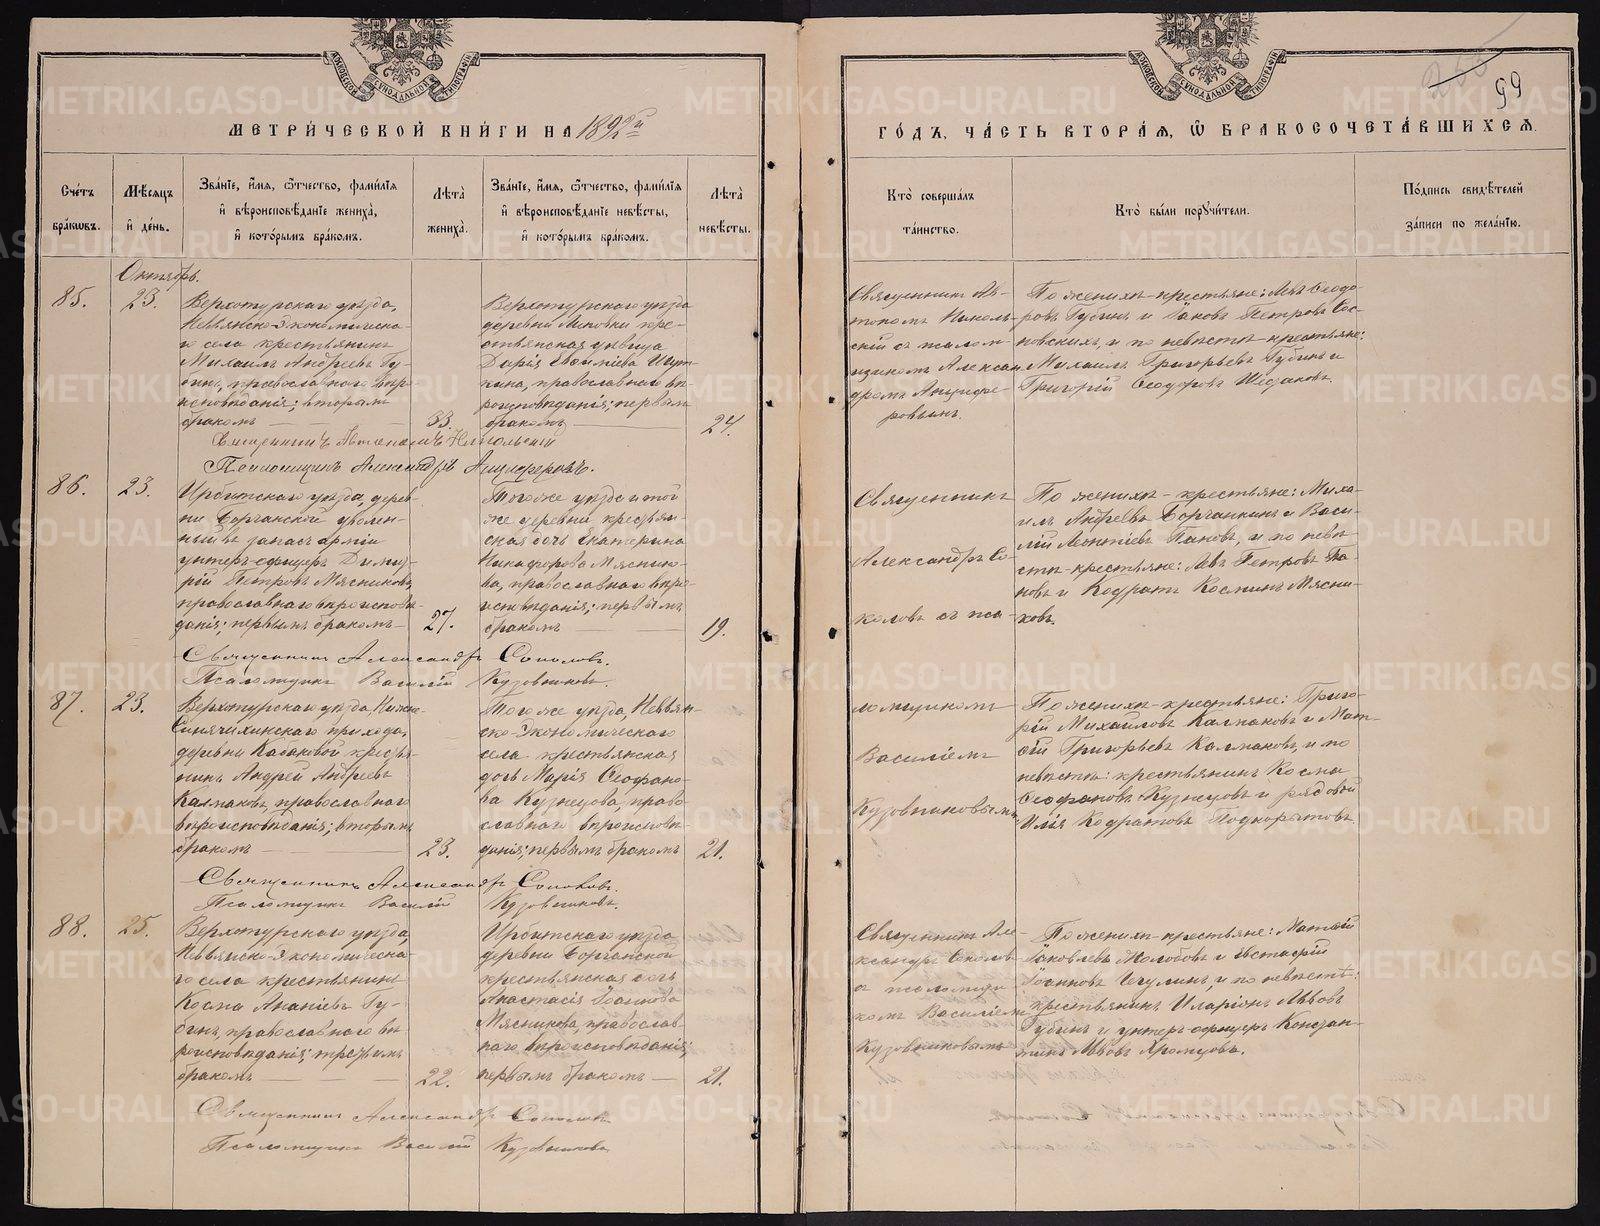 МЕТРИЧЕСКОЙ КНИГИ НА 1892й
ГОДЪ, ЧАСТЬ ВТОРАЯ, Ѡ БРАКОСОЧЕТАВШИХСЯ.
99
Счетъ браковъ.
Мѣсяцъ и день.
Званіе, имя, отчество, фамилія
и вѣроисповѣданіе жениха,
и которымъ бракомъ.
Лѣта жениха.
Званіе, имя, отчество, фамилія
и вѣроисповѣданіе невѣсты,
и которымъ бракомъ.
Лѣта невѣсты.
Кто совершалъ
таинство.
Кто были поручители.
Подпись свидѣтелей
записи по желанію.
Октябрь.
85.
23.
Верхотурскаго уѣзда,
Невьянско-Экономическа-
го села крестьянинъ
Михаилъ Андреевъ Гу-
бинъ, православнаго вѣро-
исповѣданія; вторымъ
бракомъ
33.
Верхотурскаго уѣзда
деревни
стьянская дѣвица
Дарія Евѳиміева
православнаго вѣ-
роисповѣданія; первымъ
бракомъ
24.
Священникъ Ав-
тономъ Николь-
скій съ псалом-
щикомъ Алексан-
дромъ Анциферо-
ровымъ.
По женихѣ - крестьяне: Левъ Ѳеодо-
ровъ Губинъ и Іаковъ Петровъ Сос-
новскихъ, и по невѣстѣ крестьяне:
Михаилъ Григорьевъ Губинъ и
Григорій Ѳеодоровъ
Священникъ Автономъ Никольскій
Псаломщикъ Александръ Анциферовъ.
86.
23.
Ирбитскаго уѣзда, дерев-
ни уволен-
ный въ запасъ арміи
унтеръ-офицеръ Дими-
трій Петровъ Мясниковъ,
православнаго вѣроисповѣ-
данія; первымъ бракомъ
27.
Того же уѣзда и той
же деревни крестьян-
ская дочь Екатерина
Никифорова Мяснико-
ва, православнаго вѣро-
исповѣданія; первымъ
бракомъ
19.
Священникъ
Александръ Со-
коловъ съ пса-
ломщикомъ
Василіемъ
Кузовниковымъ
По женихѣ - крестьяне: Миха-
илъ Андреевъ и Васи-
лій Леонтіевъ Пановъ, и по невѣ-
стѣ - крестьяне: Левъ Петровъ Па-
новъ и Кодратъ Косминъ Мясни-
ковъ.
Священникъ Александръ Соколовъ.
Псаломщикъ Василій Кузовниковъ.
87.
23.
Верхотурскаго уѣзда, Нижне-
Синячихинскаго прихода,
деревни Кабаковой крестья-
нинъ Андрей Андреевъ
Калмаковъ, православнаго
вѣроисповѣданія; вторымъ
бракомъ
23.
Того же уѣзда, Невьян-
ско-Экономическаго
села крестьянская
дочь Марія Ѳеофано-
ва Кузнецова, право-
славнаго вѣроисповѣ-
данія; первымъ бракомъ
21.
По женихѣ - крестьяне: Григо-
рій Михайловъ Калмаковъ и Мат-
ѳій Григорьевъ Калмаковъ, и по
невѣстѣ: крестьянинъ Косма
Ѳеофановъ Кузнецовъ и рядовой
Илія Кодратовъ Подкорытовъ.
Священникъ Александръ Соколовъ.
Псаломщикъ Василій Кузовниковъ.
88.
25.
Верхотурскаго уѣзда,
Невьянско-Экономическа-
го села крестьянинъ
Косма Ананіевъ Гу-
бинъ, православнаго вѣ-
роисповѣданія; третьимъ
бракомъ
22.
Ирбитскаго уѣзда
деревни
крестьянская дочь
Анастасія Іоаннова
Мясникова, православ-
наго вѣроисповѣданія;
первымъ бракомъ
21.
Священникъ Але-
ксандръ Соколовъ
съ псаломщи-
комъ Василіемъ
Кузовниковымъ
По женихѣ - крестьяне: Матѳій
Іаковлевъ и Евстафій
Іоанновъ и по невѣстѣ:
крестьянинъ Иларіонъ Львовъ
Губинъ и унтеръ-офицеръ Констан-
тинъ Львовъ Храмцовъ.
Священникъ Александръ Соколовъ
Псаломщикъ Василій Кузовниковъ
METRIKI.GASO-URAL.RU